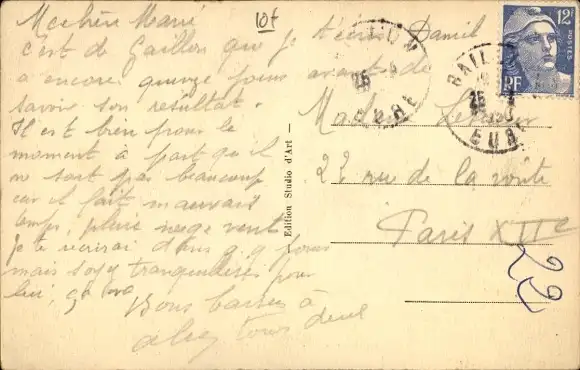 Ma chère Marie
10f
c'est de Gaillon que je t'écris Daniel
a encore quinze jours avant de
savoir son résultat.
Il est bien pour le
moment à part qu'il
ne sort pas beaucoup
car il fait mauvais
temps, pluie neige vent
Je te récrirai dans q.q jours
mais soyez tranquillisés pour
lui, ça va
Bons baisers à
chez tous deux
Edition Studio d'Art
12F
POSTES
RF
GAILLON
25
EURE
Madame
22 rue de la voûte
Paris XIIe
22